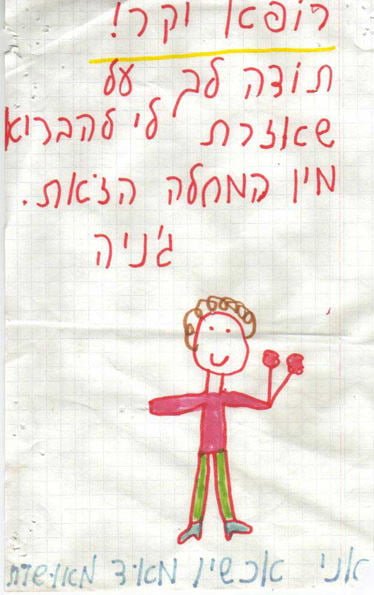 רופא יקר!
תודה לך על
שאזרת לי להברוא
מין המחלה הזאת.
ג'ניה
אני אכשיו מאוד מאושרת